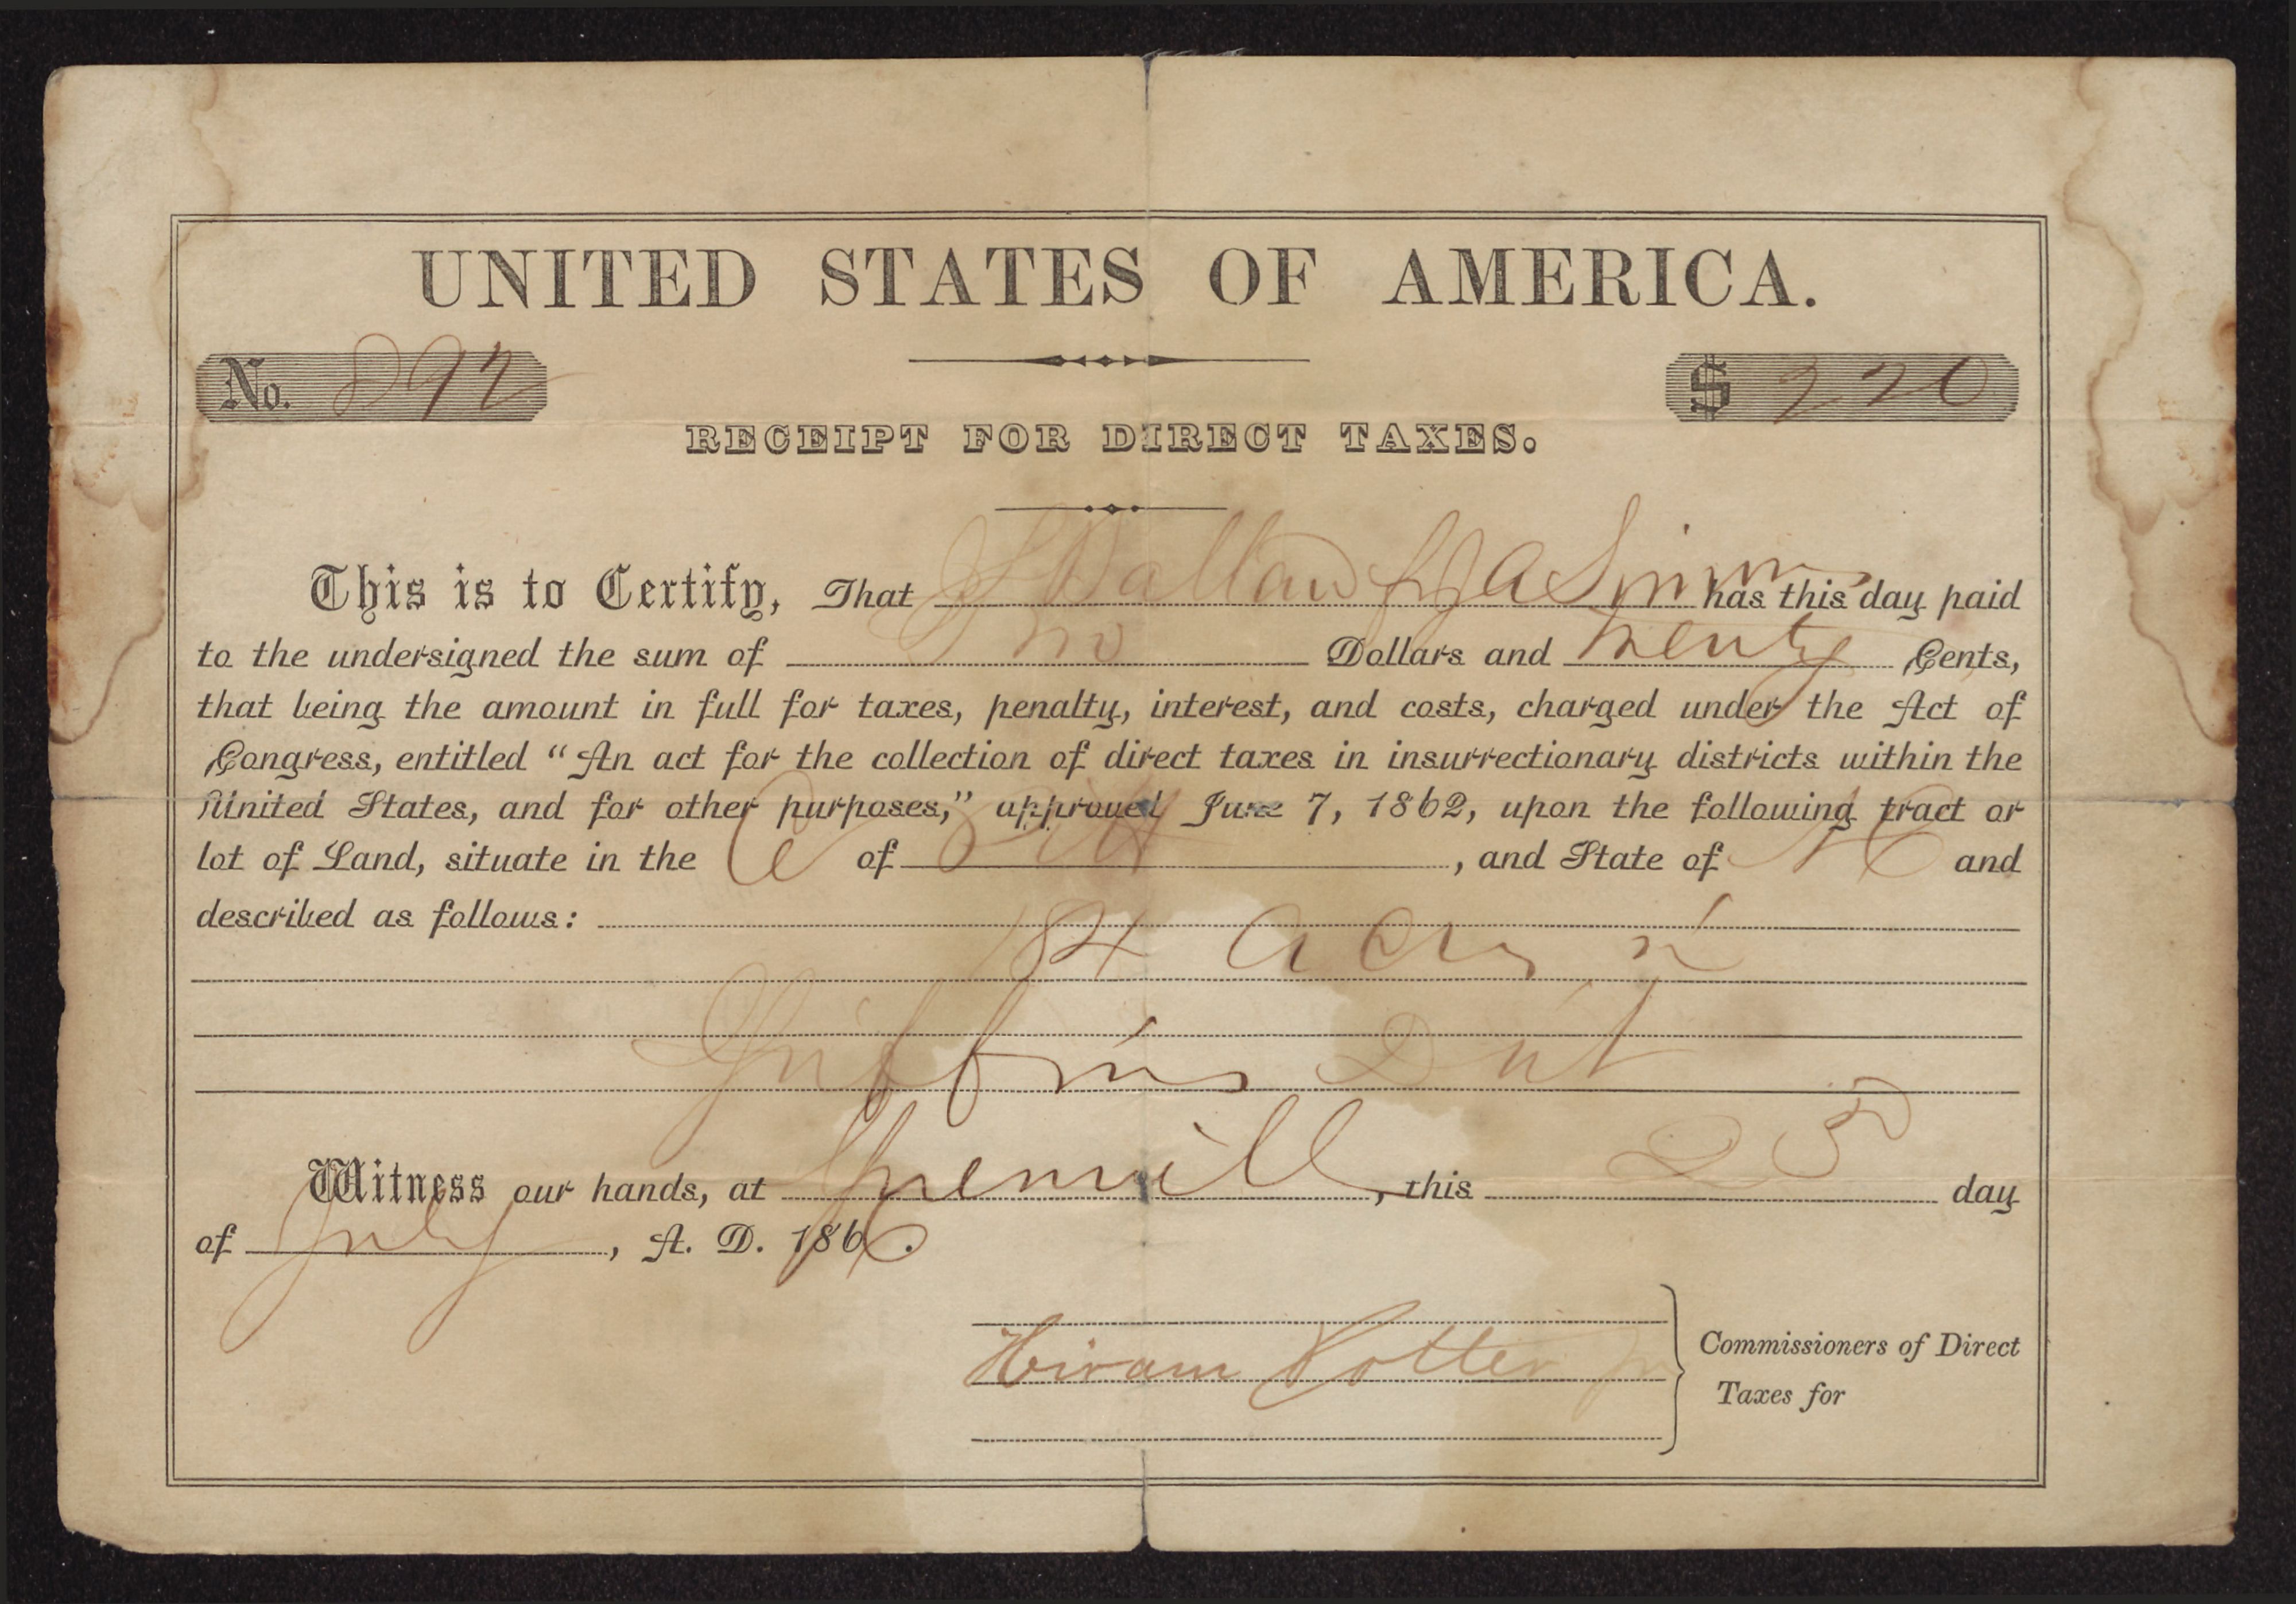 UNITED STATES OF AMERICA.
No. 892
$ 220
RECEIPT FOR DIRECT TAXES.
This is to Certify, That has this day paid
to the undersigned the sum of Two Dollars and twenty Cents,
that being the amount in full for taxes, penalty, interest, and costs, charged under the Act of
Congress, entitled “An act for the collection of direct taxes in insurrectionary districts within the
United States, and for other purposes,” approved June 7, 1862, upon the following tract or
lot of Land, situate in the C of Pitt, and State of NC and
described as follows:
184 acres
Griffins Dist
Witness our hands, at Greenvill, this 25 day
of July, A. D. 1866.
Hiram Potter Jr
Commissioners of Direct
Taxes for